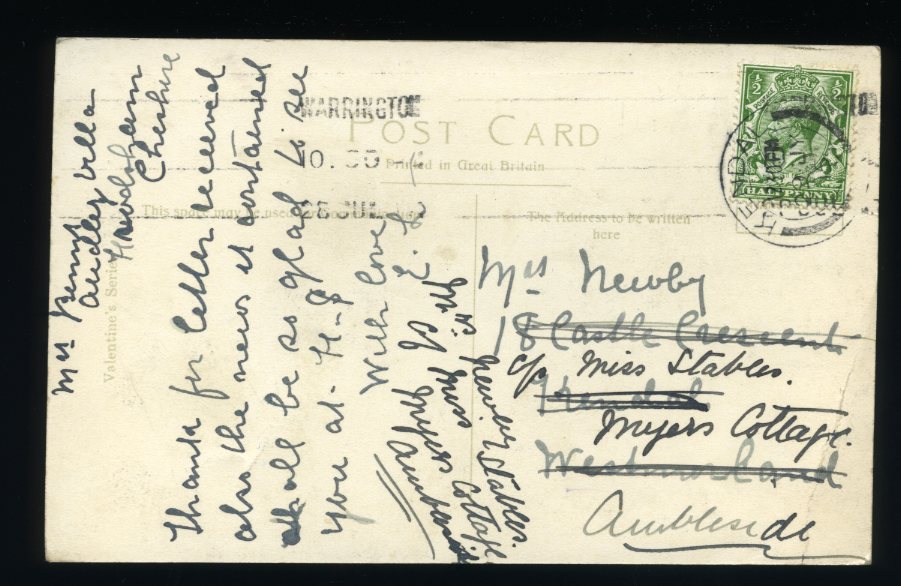 POST CARD
Printed in Great Britain
This space may be used
The Address to be written
here
Valentine's Series
WARRINGTON
10.
JUL
KENDAL
HALFPENNY
Mrs
Villa
Cheshire
Thanks for letter received
also the news it contained
shall be so glad to see
you at
With love
Mrs Newby
18 Castle Crescent
c/o Miss Stables.
Kendal
Myers Cottage.
Westmorland
Ambleside
Miss Stables.
Myers Cottage
Ambleside